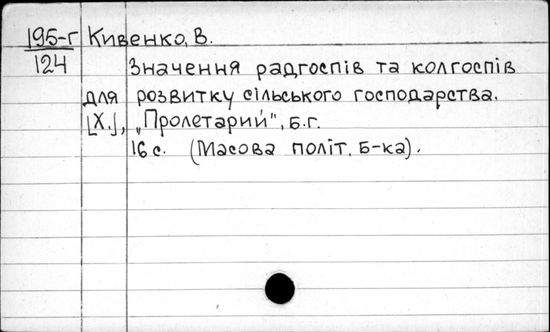 195-г Кивенко, В.
124 Значення радгоспів та колгоспів
для розвитку сільського господарства.
[Х.], „Пролетарий", б.г.
16 с. (Масова політ. б-ка).